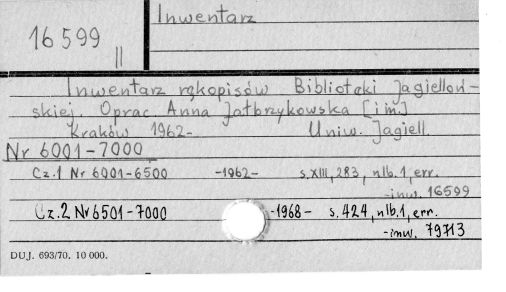 Inwentarz
16 599
II
Inwentarz rękopisów Biblioteki Jagielloń-
skiej. Oprac Anna Jałbrzykowska [i in.]
Kraków 1962- Uniw. Jagiell.
Nr 6001-7000
Cz.1 Nr 6001-6500 -1962- s. XIII, 283, nlb. 1, err.
-inw. 16599
Cz.2 Nr 6501-7000 -1968- s. 424, nlb. 1, err.
-inw. 79713
DUJ. 693/70. 10 000.